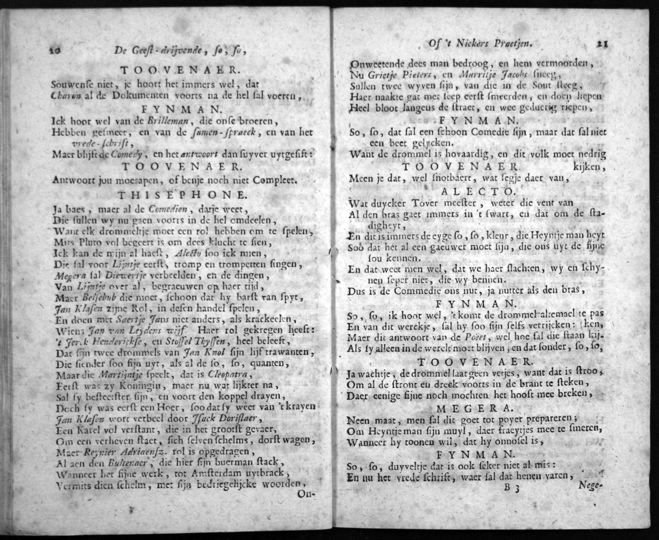 20 De Geest-drijvende, so, so,
TOOVENAER.
Souwense niet, je hoort het immers wel, dat
Charon al de Dokumenten voorts na de hel sal voeren,
FYNMAN.
Ick hoor wel van de Brilleman, die onse broeren,
Hebben gesmeet, en van de samen-spraeck, en van het
vrede-schrift,
Maer blijft de Comedy, en het antwoort dan suyver uytgesift:
TOOVENAER.
Antwoort jou moesapen, of benje noch niet Compleet.
THISEPHONE.
Ja baes, maer al de Comedien, datje weet,
Die sullen wy nu gaen voorts in de hel omdeelen,
Want elk drommeltje moet een rol hebben om te spelen,
Mits Pluto vol begeert is om dees klucht te sien,
Ick kan de mijn al haest, Alecto soo ick mien,
Die sal voor Lijntje eerst, tromp en trompetten singen,
Megera sal Diewertje verbeelden, en de dingen,
Van Lijntje over al, begraeuwen op haer tijd,
Maer Belsebub die moet, schoon dat hy barst van spyt,
Jan Klasen zijne Rol, in desen handel spelen,
En doen met Saertje Jans niet anders, als krackeelen,
Wiens Jan van Leydens wijf Haer rol gekregen heeft:
't Jerck Henderickse, en Stoffel Thyssen, heel beleeft,
Dat sijn twee drommels van Jan Knol sijn lijftrawanten,
Die siender soo fijn uyt, als al de so, so, quanten,
Maar die Martijntje speelt, dat is Cleopatra,
Eerst was zy Koningin, maer nu wat lijkter na,
Sal sy besteetster sijn, en voort den koppel drayen,
Doch sy was eerst een Heer, soo dat sy weer van 't krayen
Jan Klasen wort verbeel door Isack Dorislaer,
Een Karel vol verstant, die in het grootst gevaer,
Om een verheven staet, sich selven schelms, dorst wagen,
Maer Reynier Adriaensz. rol is opgedragen,
Al aen den Bultenaer, die hier sijn buerman stack,
Wanneer het sijne werk, tot Amsterdam uytbrack,
Vermits dien schelm, met sijn bedriegelijcke woorden,
On-
Of 't Nickers Praetjen. 21
Onweetende dees man bedroog, en hem vermoorden,
Nu Grietje Pieters, en Marritje Jacobs sneeg,
Sullen twee wyven sijn, van die in de Sout steeg,
Haer naakte gat met seep eerst smeerden, en doen liepen
Heel bloot langeus de straet, en wee geduerig riepen,
FYNMAN.
So, so, dat sal een schoon Comedie sijn, maar dat sal niet
een beet gelijcken.
Want de drommel is hovaardig, en dit volk moet nedrig
kijken,
TOOVENAER
Meen je dat, wel snotbaert, wat segje daer van,
ALECTO.
Wat duycker Tover meester, weter die vent van
Al den bras gaet immers in 't swart, en dat om de sta-
digheyt,
En dit is immers de eyge so, so, kleur, die Heyntje man heyt
Soo dat het al een gaeuwer moet sijn, die ons uyt de fijne
sou kennen.
En dat weet men wel, dat we haer slachten, wy en schy-
nen seper niet, die wy bennen.
Dus is de Commedie ons nut, ja nutter als den bras,
FYNMAN.
So, so, ik hoor wel, 't komt de drommel altemael te pas
En van dit werekje, sal hy soo sijn selfs verrijcken: ken,
Maer dit antwoort van de Poëet, wel hoe sal die staan kij-
Als sy alleen in de werelt moet blijven, en dat sonder, so, so,
TOOVENAER.
Ja wachtje, de drommel laat geen veejes, want dat is stroo,
Om al de stront en dreek voorts in de brant te steken,
Daer eenige fijne noch mochten het hooft mee breken,
MEGERA.
Neen maat, men sal dit goet tot poyer prepareren;
Om Heyntjeman sijn muyl, daer fraeytjes mee te smeren,
Wanneer hy toonen wil, dat hy onnosel is,
FYNMAN.
So, so, duyveltje dat is ook seker niet al mis:
En nu het vrede schrift, waer sal dat henen varen,
B 3 Nege-